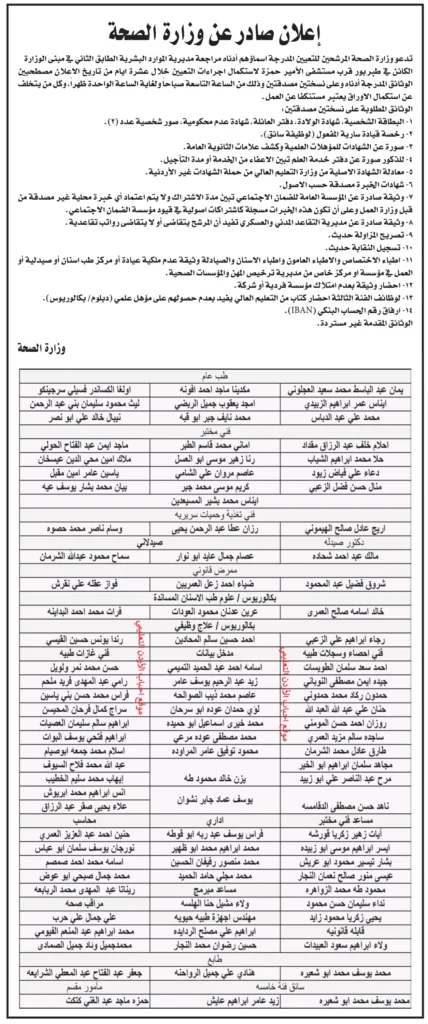 إعلان صادر عن وزارة الصحة
تدعو وزارة الصحة المرشحين للتعيين المدرجة اسماؤهم أدناه مراجعة مديرية الموارد البشرية الطابق الثاني في مبنى الوزارة
الكائن في طبربور قرب مستشفى الأمير حمزة لاستكمال اجراءات التعيين خلال عشرة ايام من تاريخ الاعلان مصطحبين
الوثائق المدرجة أدناه وعلى نسختين مصدقتين وذلك من الساعة التاسعة صباحاً ولغاية الساعة الواحدة ظهراً، وكل من يتخلف
عن استكمال الاوراق يعتبر مستنكفا عن العمل.
الوثائق المطلوبة على نسختين مصدقتين:
١- البطاقة الشخصية، شهادة الولادة، دفتر العائلة، شهادة عدم محكومية، صور شخصية عدد (٢).
٢- رخصة قيادة سارية المفعول (لوظيفة سائق).
٣- صورة عن الشهادات للمؤهلات العلمية وكشف علامات الثانوية العامة.
٤- للذكور صورة عن دفتر خدمة العلم تبين الاعفاء من الخدمة أو مدة التأجيل.
٥- معادلة الشهادة الاصلية من وزارة التعليم العالي من حملة الشهادات غير الأردنية.
٦- شهادات الخبرة مصدقة حسب الاصول.
٧- وثيقة صادرة عن المؤسسة العامة للضمان الاجتماعي تبين مدة الاشتراك ولا يتم اعتماد أي خبرة محلية غير مصدقة من
قبل وزارة العمل وعلى أن تكون هذه الخبرات مسجلة كاشتراكات اصولية في قيود مؤسسة الضمان الاجتماعي.
٨- وثيقة صادرة عن مديرية التقاعد المدني والعسكري تفيد أن المرشح يتقاضى أو لا يتقاضى رواتب تقاعدية.
٩- تصريح المزاولة حديث.
١٠- تسجيل النقابة حديث.
١١- اطباء الاختصاص والاطباء العامون واطباء الاسنان والصيادلة وثيقة عدم ملكية عيادة أو مركز طب اسنان أو صيدلية أو
العمل في مؤسسة أو مركز خاص من مديرية ترخيص المهن والمؤسسات الصحية.
١٢- احضار وثيقة بعدم امتلاك مؤسسة فردية أو شركة.
١٣- لوظائف الفئة الثالثة احضار كتاب من التعليم العالي يفيد بعدم حصولهم على مؤهل علمي (دبلوم/ بكالوريوس).
١٤- ارفاق رقم الحساب البنكي (IBAN).
الوثائق المقدمة غير مستردة.
وزارة الصحة
طب عام
يمان عبد الباسط محمد سعيد العجلوني مكدينا ماجد احمد افونه اولغا الكساندر فسيلي سرجينكو
ايناس عمر ابراهيم الزبيدي امجد يعقوب جميل الربضي ليث محمود سليمان بني عبد الرحمن
محمد علي عبد الدباس محمد نايف جبر ابو قبه نيبال خالد علي ابو نصر
فني مختبر
احلام خلف عبد الرزاق مقداد اماني محمد قاسم الطير ماجد ايمن عبد الفتاح الحولي
حلا محمد ابراهيم الشياب رنا زهير موسى ابو العسل ملاك امين محي الدين عيسخان
دعاء علي فياض زيود عاصم مروان علي الشامي ياسين عامر امين مقبل
منال حسن فضل الزعبي كريم موسى محمد جبر بيان محمد بشار يوسف عيه
ايناس محمد بشير المسيعدين
فني تغذية وحميات سريريه
اريج عادل صالح الهيموني رزان عطا عبد الرحمن يحيى وسام ناصر محمد حصوه
دكتور صيدله صيدلاني
مالك عبد احمد شحاده عصام جمال عايد ابو نوار سماح محمود عبدالله الشرمان
ممرض قانوني
شروق فضيل عبد المحمود ضياء احمد زعل العمريين فواز عقله علي نقرش
بكالوريوس / علوم طب الاسنان المساندة
خالد اسامه صالح العمري عرين عدنان محمود العودات فرات محمد احمد البداينه
بكالوريوس / علاج وظيفي
رجاء ابراهيم علي الزعبي احمد حسين سالم المحادين رندا يونس حسين القيسي
فني احصاء وسجلات طبيه مدخل بيانات فني غازات طبيه
احمد سعد سلمان الطويسات اسامه احمد عبد الحميد التميمي حسن محمد نمر ولويل
جيده ايمن مصطفى النوباني زيد عبد الرحيم يوسف عامر رامي عبد المهدي فريد ملحم
حمدون ركاد محمد حمدوني عاصم محمد ذيب الصوالحه فراس محمد حسن بني ياسين
حنان علي عبد الله العبد الله لؤي حمدان عوده ابو سرحان سراج كمال فرحان المحيسن
روزان احمد حسن المومني محمد خيري اسماعيل ابو حميده ابراهيم سالم سليمان العصيات
ساجده سالم مزيد العمري محمد مصطفى عوده مرعي ابراهيم فتحي يوسف البوات
طارق عادل محمد الشرمان محمود توفيق عامر المراوده اسلام محمد جمعه ابوصيام
مجاهد سلمان ابراهيم ابو الخير عبد الله محمد فلاح السيوف
مرح عبد الناصر علي ابو زبيد يزن خالد محمود طه ايهاب محمد سليم الخطيب
ناهد حسن مصطفى الدقامسه يوسف عماد جابر نشوان انس ابراهيم محمد ابريوش
علاء يحيى صقر عبد الرزاق
مساعد فني مختبر اداري محاسب
آيات زهير زكريا قورشه فراس يوسف عبد ربه ابو قوطه حنين احمد عبد العزيز العمري
ايسر ابراهيم موسى ابو زبيده محمد ابراهيم محمد ابو ظهير نورجان يوسف سلمان ابو عباس
بشار تيسير محمود ابو عريش محمد منصور رفيفان الحسين اسامه محمد احمد صمصم
عيسى منور صالح نعمان النجار محمد مجلي حامد الحميد محمد جمال صبحي ابو عوض
محمود طه محمد الزواهره مساعد مبرمج ريناتا عبد المهدى محمد الربابعه
نداء سليمان محمد حسن ولاء مشيل حنا الهلسه مراقب صحه
يحيى زكريا محمود زايد مهندس اجهزة طبيه حيويه علي جمال علي حرب
قابله قانونيه ابراهيم علي مصلح الردايده محمد ابراهيم عبد المنعم الفيومي
ولاء ابراهيم سعود العبيدات حسين رضوان محمد النجار محمدجميل وناد جميل الصمادى
طابع
محمد يوسف محمد ابو شعيره هنادي علي جميل الرواحنه جعفر عبد الفتاح عبد المعطي الشرايعه
سائق فئة خامسه مأمور مقسم
محمد يوسف محمد ابو شعيره زيد عامر ابراهيم عايش حمزه ماجد عبد الغني كتكت
موقع احباب الأردن التعليمي
موقع احباب الأردن التعليمي